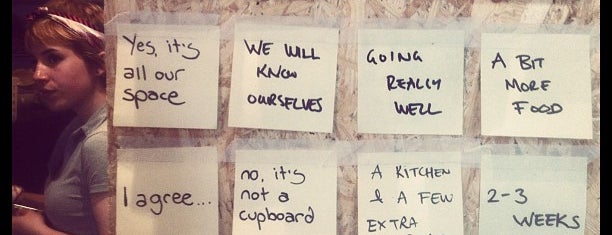 Yes, it's
all our
space
WE WILL
KNOW
OURSELVES
GOING
REALLY
WELL
A BIT
MORE
FOOD
I agree...
no, it's
not a
cupboard
A KITCHEN
& A FEW
EXTRA
2-3
WEEKS